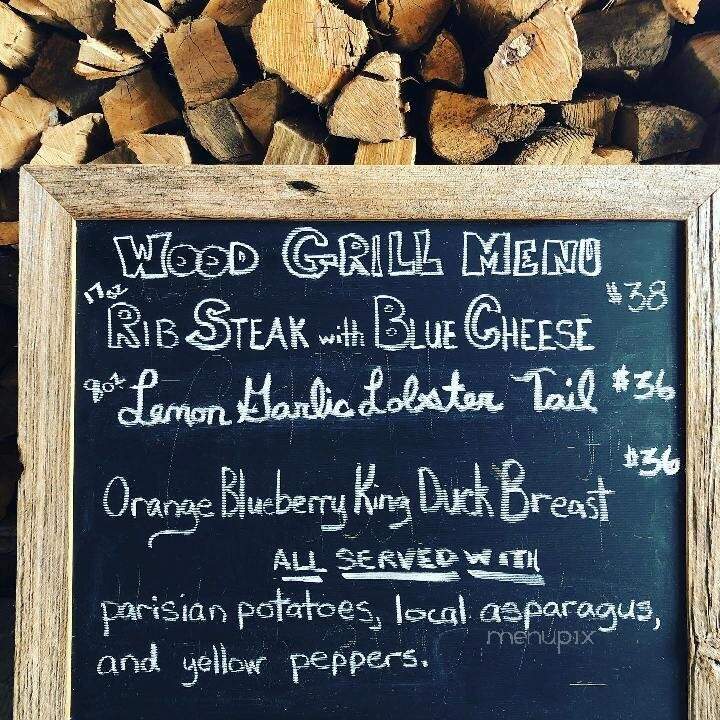 WOOD GRILL MENU
17oz $38
RIB STEAK with BLUE CHEESE
8oz Lemon Garlic Lobster Tail $36
$36
Orange Blueberry King Duck Breast
ALL SERVED WITH
parisian potatoes, local asparagus,
menupix
and yellow peppers.